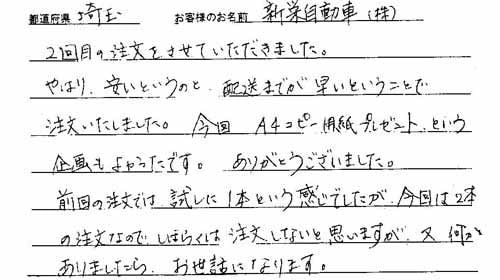 都道府県 埼玉 お客様のお名前 新栄自動車(株)
2回目の注文をさせていただきました。
やはり、安いというのと、配送までが早いということで
注文いたしました。今回 A4コピー用紙プレゼント、という
企画もよかったです。ありがとうございました。
前回の注文では、試しに1本という感じでしたが、今回は2本
の注文なので、しばらくは注文しないと思いますが、又何か
ありましたら、お世話になります。